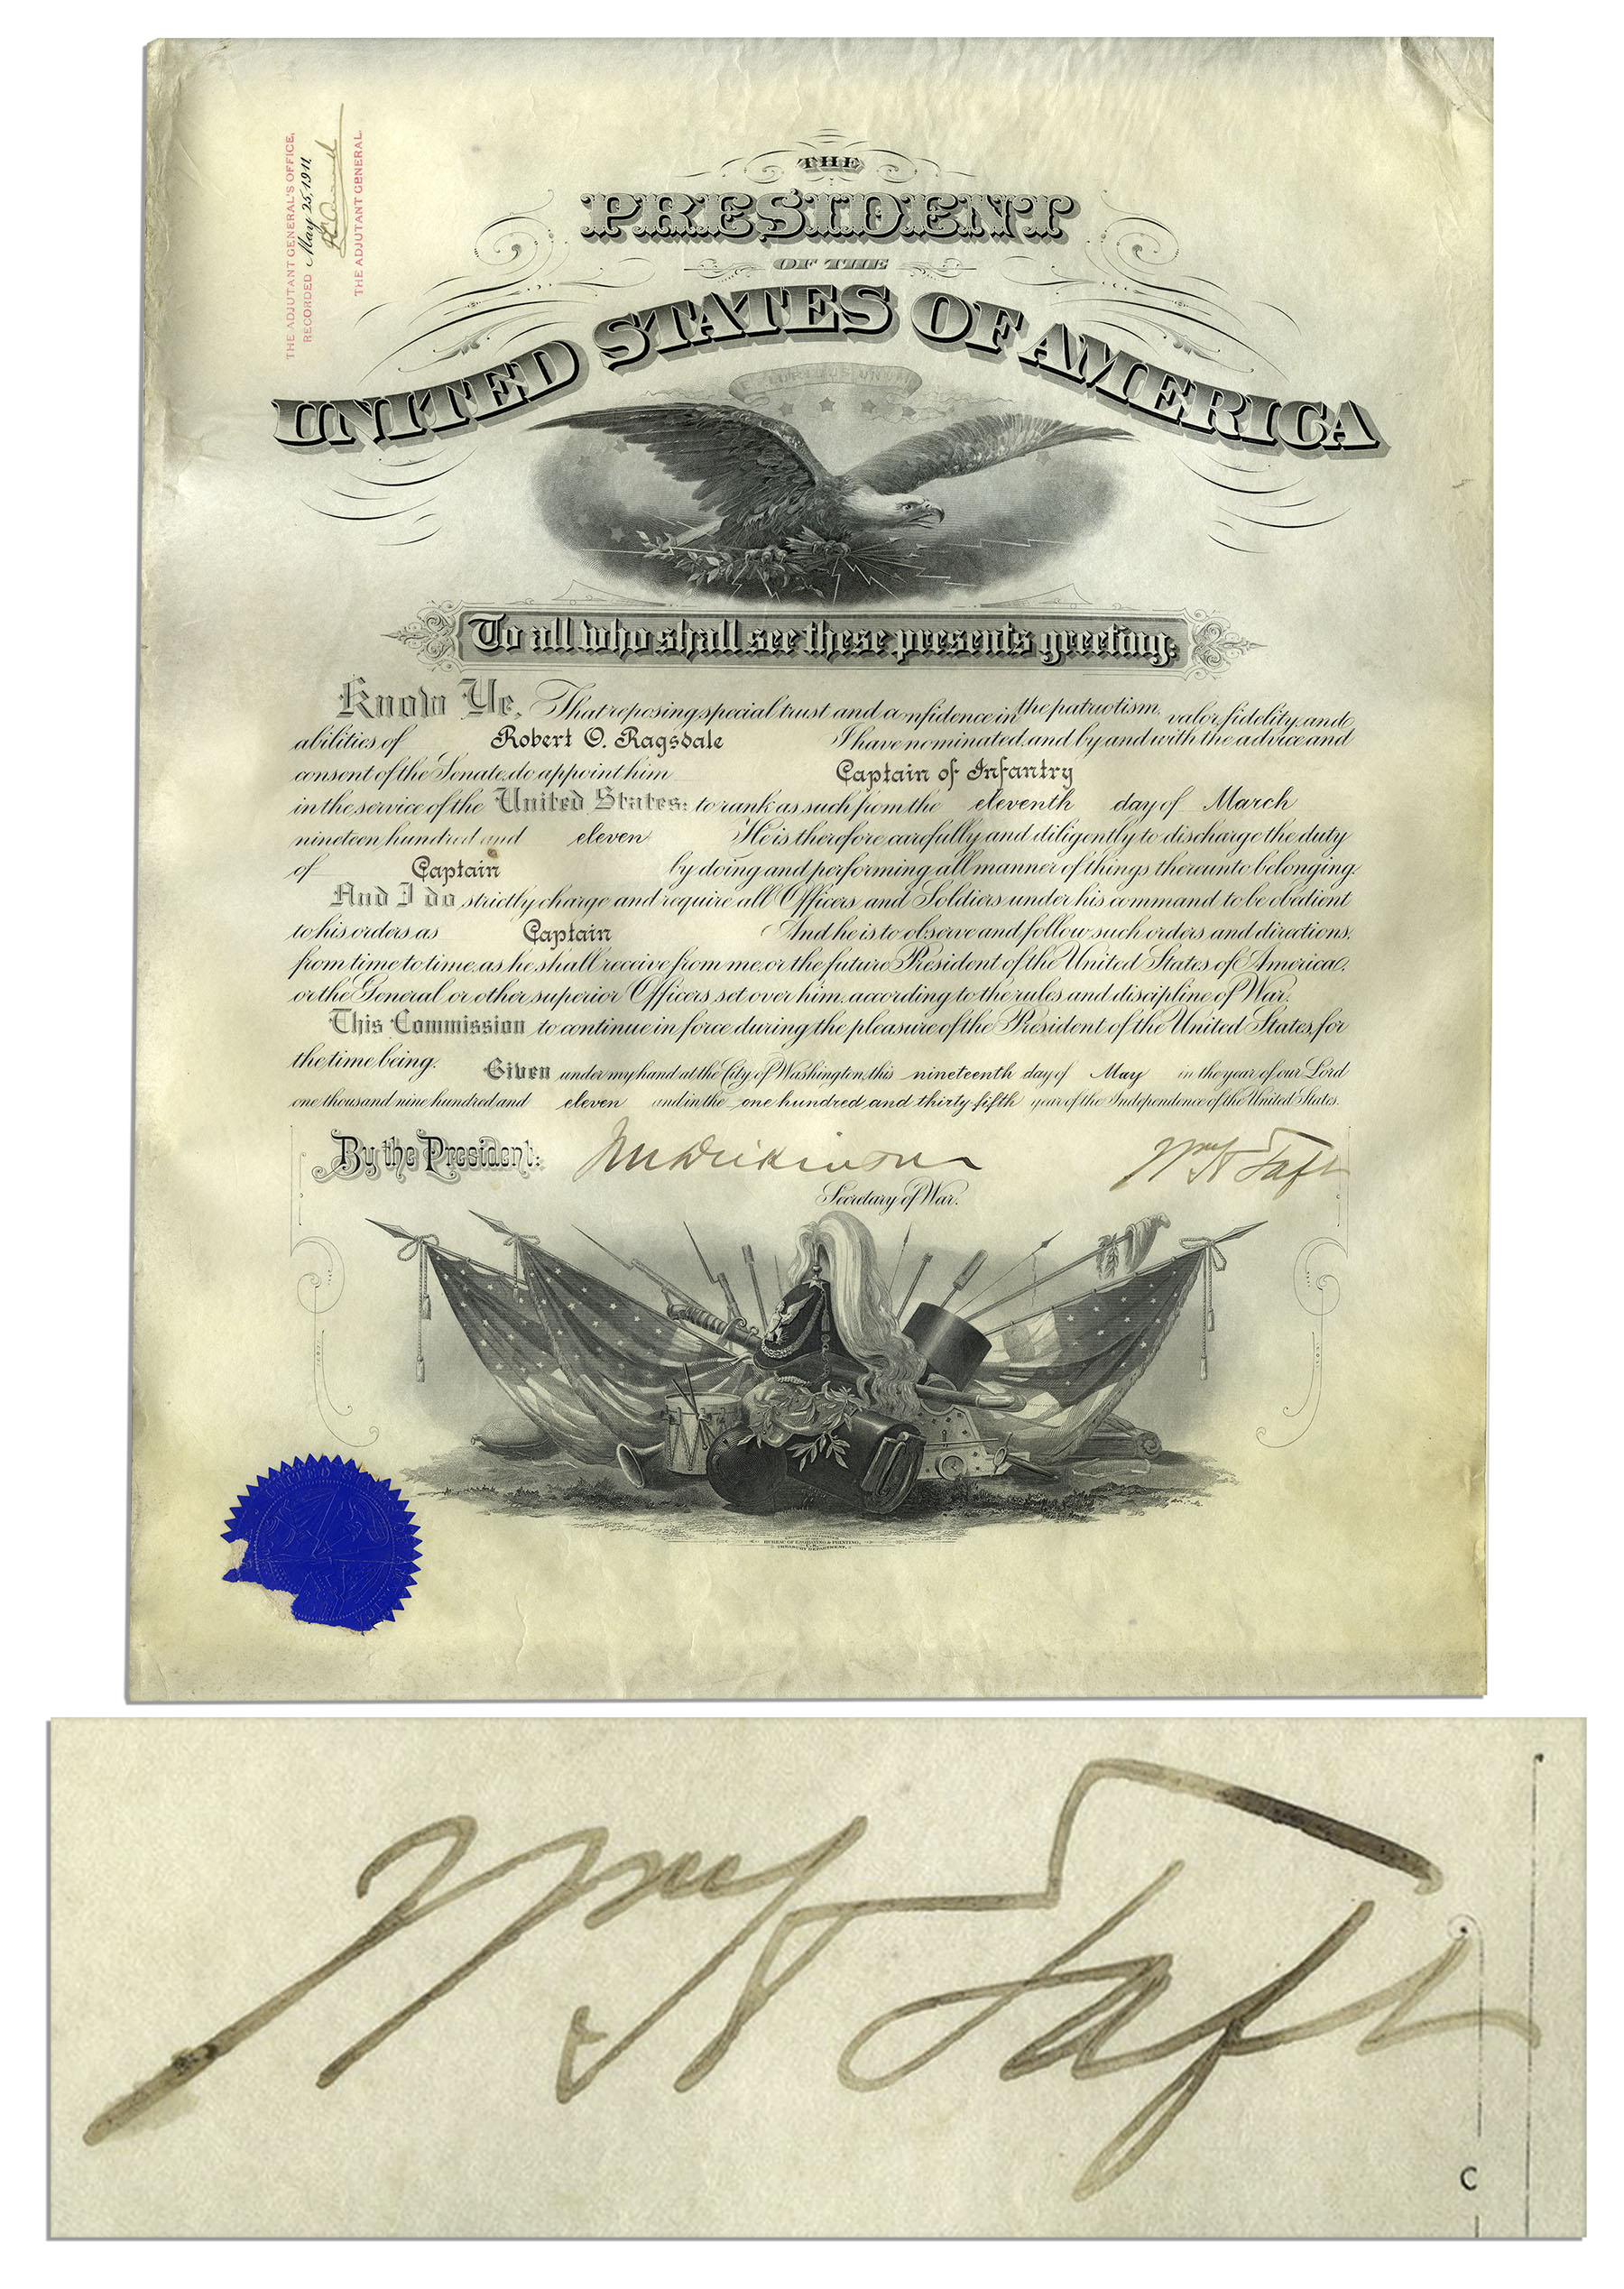 THE ADJUTANT GENERAL'S OFFICE,
RECORDED May 25, 1911
THE ADJUTANT GENERAL.
THE
PRESIDENT
OF THE
UNITED STATES OF AMERICA
E PLURIBUS UNUM
To all who shall see these presents greeting:
Know Ye, That reposing special trust and confidence in the patriotism, valor, fidelity and
abilities of Robert O. Ragsdale I have nominated and by and with the advice and
consent of the Senate do appoint him Captain of Infantry
in the service of the United States: to rank as such from the eleventh day of March
nineteen hundred and eleven He is therefore carefully and diligently to discharge the duty
of Captain by doing and performing all manner of things thereunto belonging.
And I do strictly charge and require all Officers and Soldiers under his command to be obedient
to his orders as Captain And he is to observe and follow such orders and directions,
from time to time, as he shall receive from me, or the future President of the United States of America,
or the General or other superior Officers set over him, according to the rules and discipline of War.
This Commission to continue in force during the pleasure of the President of the United States, for
the time being. Given under my hand at the City of Washington, this nineteenth day of May in the year of our Lord
one thousand nine hundred and eleven and in the one hundred and thirty-fifth year of the Independence of the United States.
By the President: J M Dickinson Wm H Taft
Secretary of War.
BUREAU OF ENGRAVING & PRINTING,
TREASURY DEPARTMENT.
Wm H Taft
C